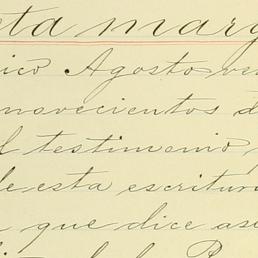 ta marg
ico Agosto ve
novecientos d
l testimonio
de esta escritur
que dice as